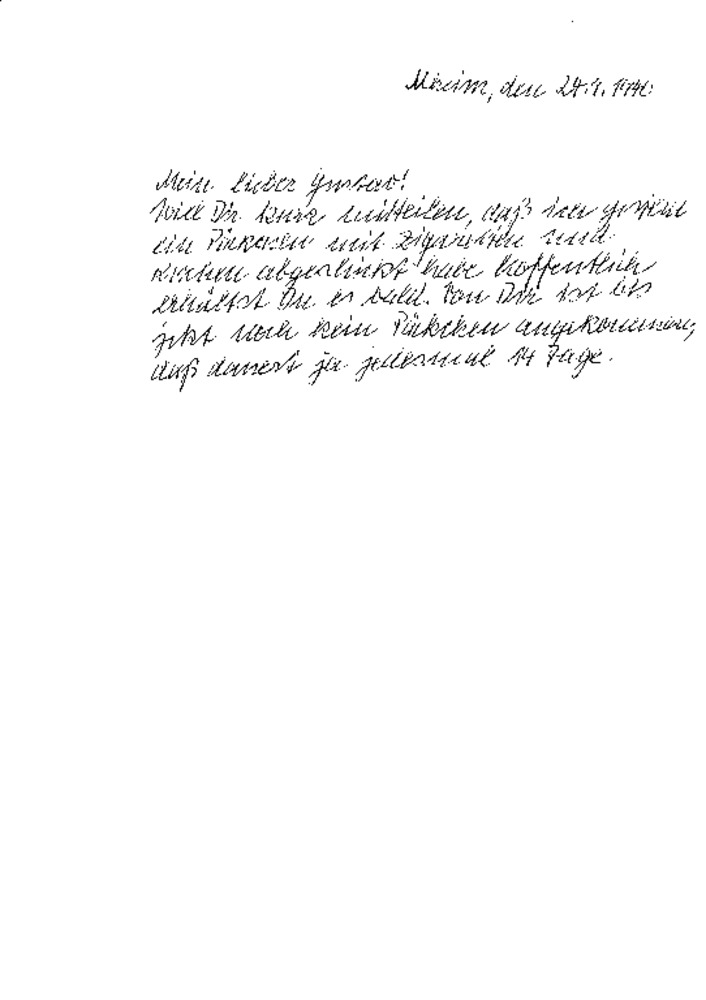 den 24.9.1940.
Mein lieber Gustav!
Will Dir kurz mitteilen, daß ich gestern
ein Päkchen mit Zigaretten und
Kuchen abgeschickt habe hoffentlich
erhältst Du es bald. Von Dir ist bis
jetzt noch kein Päkchen angekommen,
daß dauert ja jedesmal 14 Tage.